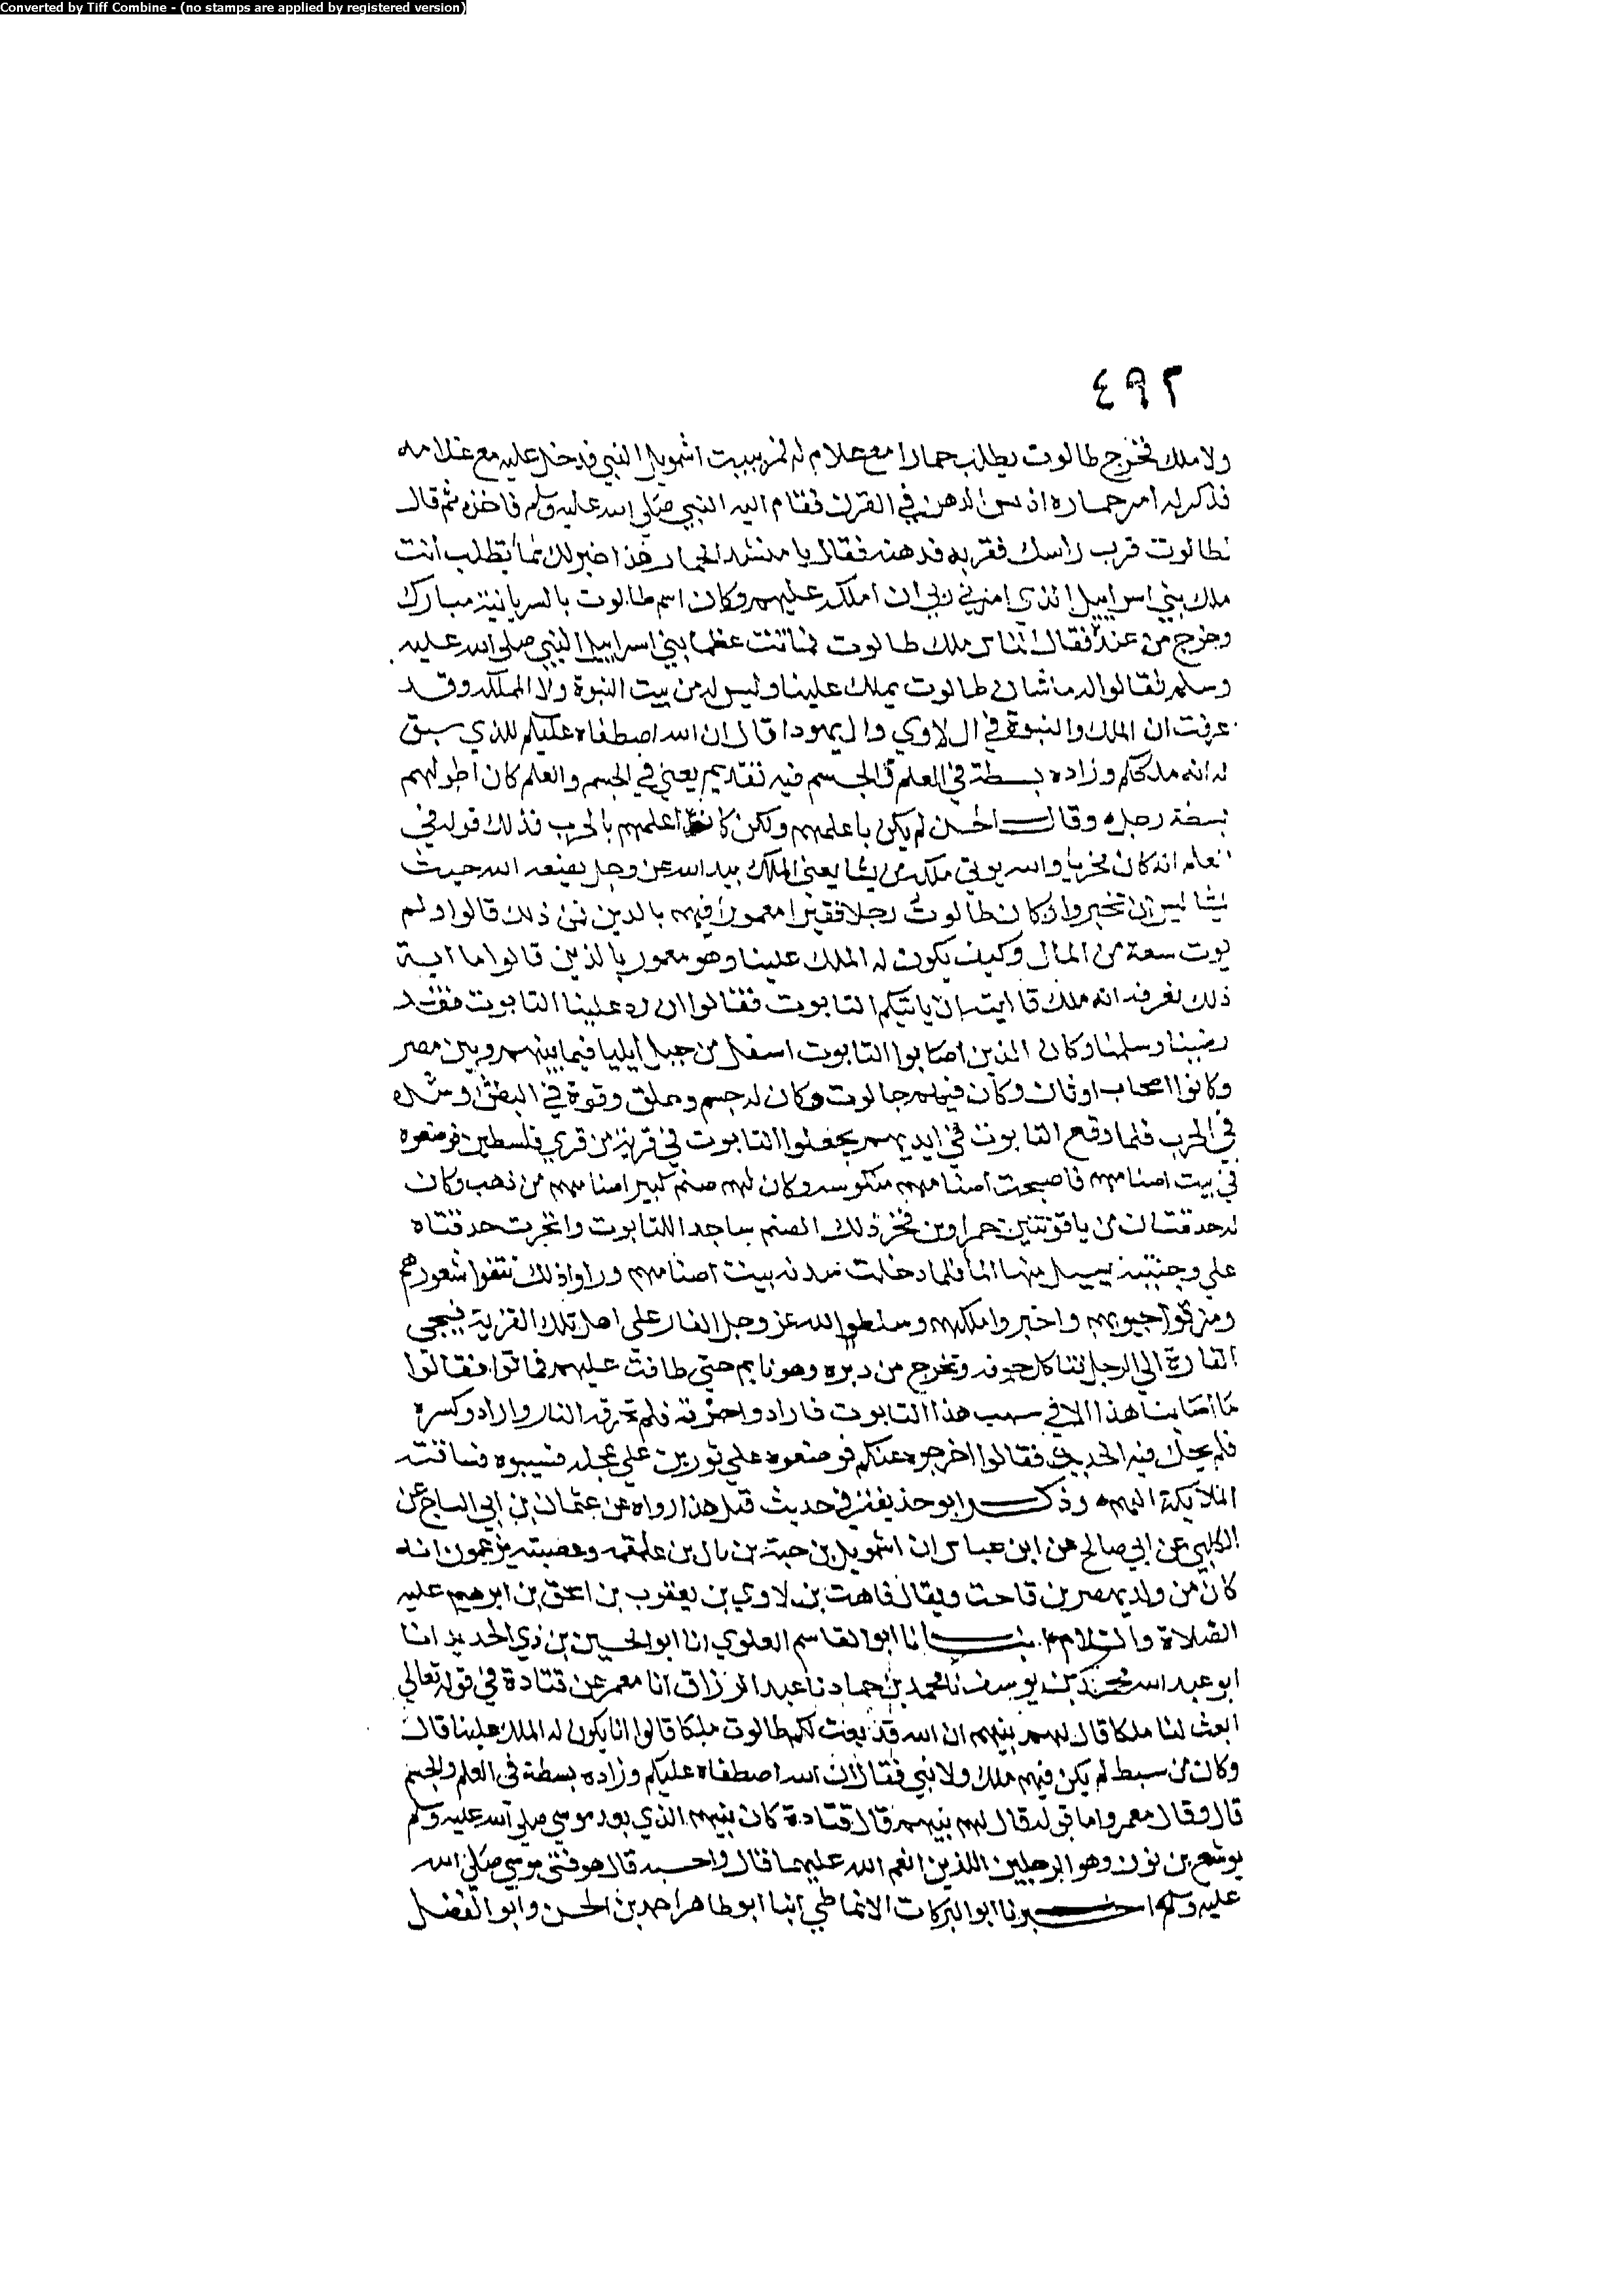 Converted by Tiff Combine - (no stamps are applied by registered version)
٤٩٢
ولا ملك فخرج طالوت يطلب حمارا مع غلام له فمر ببيت اشمويل النبي فدخل عليه مع غلامه
فذكر له امر حماره اذ الدهن في القرن فقام اليه النبي صلى الله عليه وسلم فاخذه ثم قال
لطالوت قرب راسك فقربه فدهنه فقال يا منشد الحمار هذا خير لك مما تطلب انت
ملك بني اسراييل الذي امرني ربي ان املكه عليهم وكان اسم طالوت بالسريانية مبارك
وخرج من عنده فقال الناس ملك طالوت فاتت عظما بني اسراييل النبي صلى الله عليه
وسلم فقالوا له ما شان طالوت يملك علينا وليس له من بيت النبوة ولا المملكه وقد
عرفت ان الملك والنبوة في ال لاوي وال يهودا قال ان الله اصطفاه عليكم للذي سبق
له انه ملككم وزاده بسطة في العلم والجسم فيه تقديم يعني في الجسم والعلم كان اطولهم
بسطة رجل وقال الحسن لم يكن باعلمهم ولكن كان اعلمهم بالحرب فذلك قوله في
العلم انه كان مجربا والله يوتي ملكه من يشا يعني الملك بيد الله عز وجل يضعه الله حيث
يشا ليس ان تخيروا وكان طالوت رجلا فقيرا مغمورا فيهم بالدين فمن ذلك قالوا ولم
يوت سعة من المال وكيف يكون له الملك علينا وهو مغمور بالدين قالوا ما اية
ذلك نعرفه انه ملك قال ايته ان ياتيكم التابوت فقالوا ان رد علينا التابوت فقد
رضينا وسلمنا وكان الذين اصابوا التابوت اسفل من جبل ايليا فيما بينهم وبين مصر
وكانوا اصحاب اوثان وكان فيهم جالوت وكان له جسم وخلق وقوة في البطش وشده
في الحرب فلما وقع التابوت في ايديهم جعلوا التابوت في قرية من قري فلسطين فوضعوه
في بيت اصنامهم فاصبحت اصنامهم منكوسه وكان لهم صنم كبير اصنامهم من ذهب وكان
له حدقتان من ياقوتتين حمراوين فخر ذلك الصنم ساجدا للتابوت وانحدرت حدقتاه
علي وجنتيه يسيل منها الما فلما دخلت سدنه بيت اصنامهم وراوا ذلك نتفوا شعورهم
ومزقوا جيوبهم واخبروا ملكهم وسلط الله عز وجل الفار على اهل تلك القرية فيجي
الفارة الي الرجل فتاكل جوفه وتخرج من دبره وهو نايم حتي طافت عليهم فماتوا فقالوا
ما اصابنا هذا الا في سبب هذا التابوت فارادوا حرقه فلم تحرقه النار وارادوا كسره
فلم يحك فيه الحديد فقالوا اخرجوه عنكم فوضعوه علي ثورين علي عجله فسيبوه فساقته
الملايكة اليهم وذكر ابو حذيفة في حديث قبل هذا رواه عن عثمان بن ابي الساج عن
الكلبي عن ابي صالح عن ابن عباس ان اشمويل بن حبة بن بال بن علقمه وعصبته يزعمون انه
كان من ولد يصهر بن قاحت ويقال فاهت بن لاوي بن يعقوب بن اسحق بن ابرهيم عليه
الصلاة والسلام انبانا ابو القاسم العلوي انا ابو الحسين بن ذي الحديد انا
ابو عبد الله محمد بن يوسف نا محمد بن حماد نا عبد الرزاق انا معمر عن قتادة في قوله تعالي
ابعث لنا ملكا قال لهم نبيهم ان الله قد بعث لكم طالوت ملكا قالوا انا يكون له الملك علينا قال
وكان من سبط لم يكن فيهم ملك ولا نبي فقال ان الله اصطفاه عليكم وزاده بسطة في العلم والجسم
قال وقال معمر واما قوله قال لهم نبيهم قال قتادة كان نبيهم الذي بعد موسي صلى الله عليه وسلم
يوشع بن نون وهو الرجلين اللذين انعم الله عليهما قال واحسبه قال هو فتى موسي صلى الله
عليه وسلم اخبرنا ابو البركات الانماطي انبا ابو طاهر احمد بن الحسن وابو الفضل